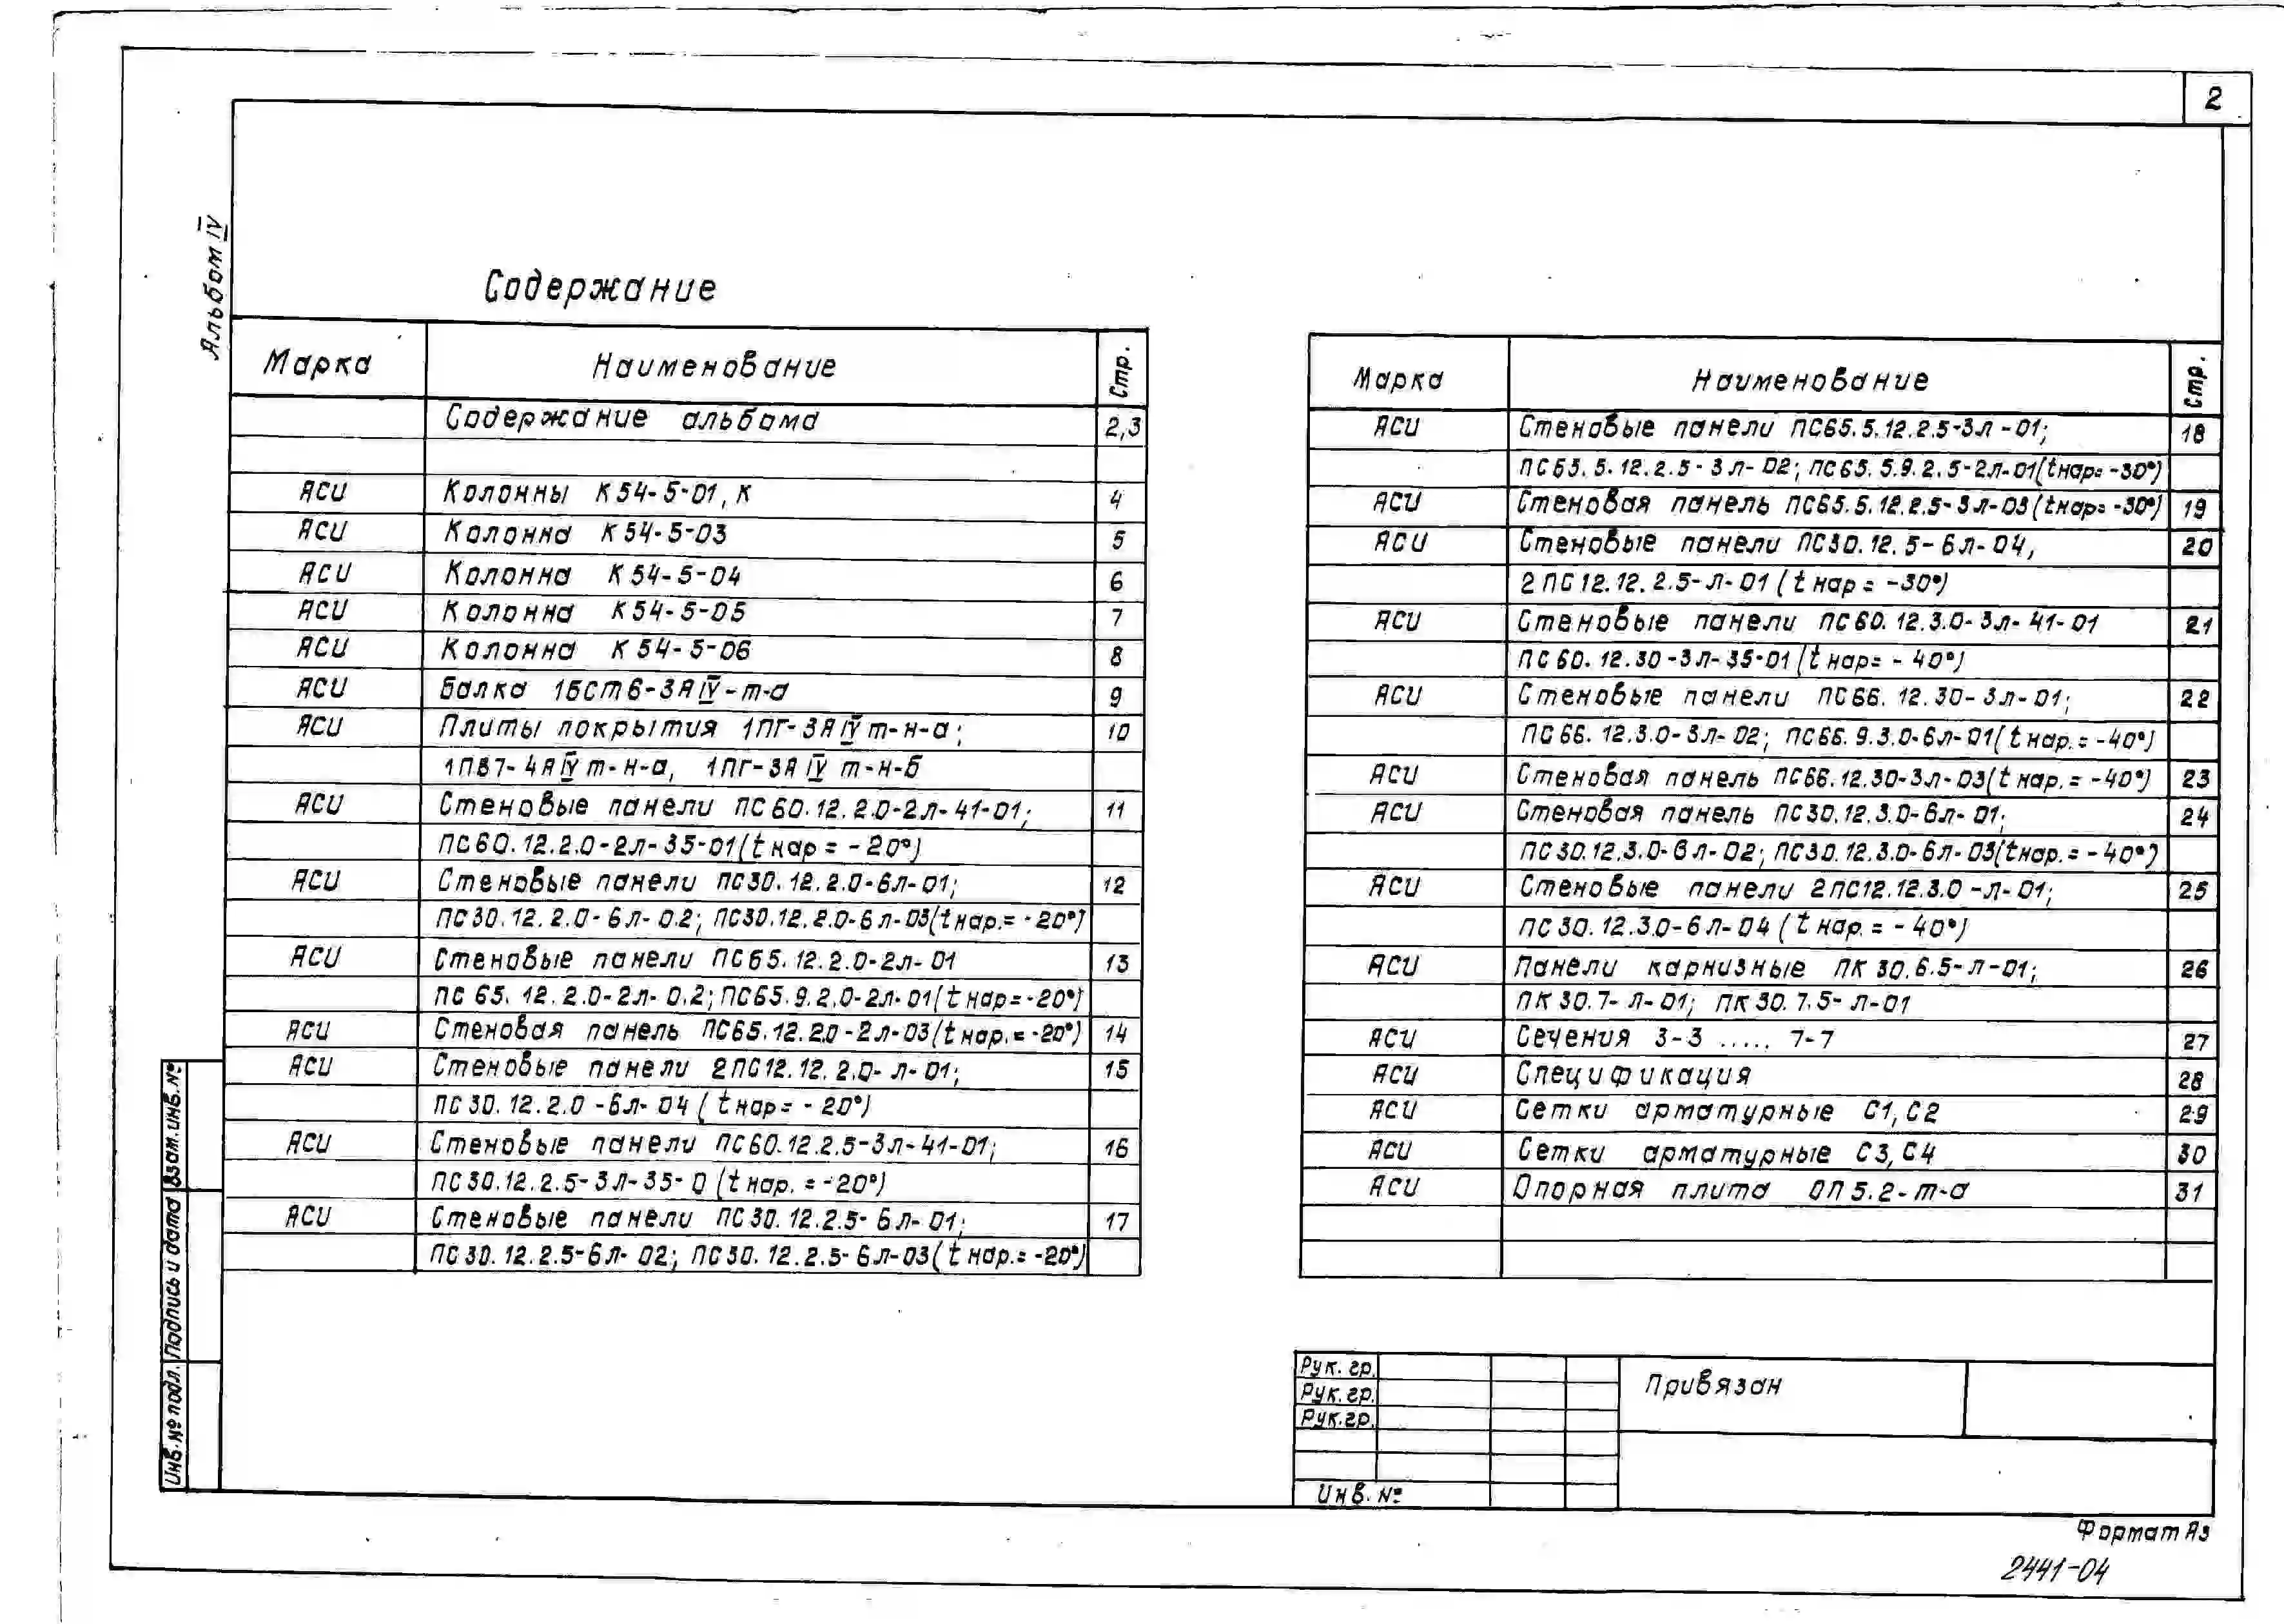 2
Альбом IV
Содержание
Марка Наименование Стр.
Содержание альбома 2,3
АСИ Колонны К54-5-01, К 4
АСИ Колонна К54-5-03 5
АСИ Колонна К54-5-04 6
АСИ Колонна К54-5-05 7
АСИ Колонна К54-5-06 8
АСИ Балка 1БСТ6-3АIV-т-а 9
АСИ Плиты покрытия 1ПГ-3АIVт-н-а; 10
1ПВ7-4АIVт-н-а, 1ПГ-3АIV т-н-б
АСИ Стеновые панели ПС60.12.2.0-2л-41-01; 11
ПС60.12.2.0-2л-35-01(tнар = -20°)
АСИ Стеновые панели ПС30.12.2.0-6л-01; 12
ПС30.12.2.0-6л-0.2; ПС30.12.2.0-6л-03(tнар.= -20°)
АСИ Стеновые панели ПС65.12.2.0-2л-01 13
ПС 65.12.2.0-2л-0.2; ПС65.9.2.0-2л-01(tнар=-20°)
АСИ Стеновая панель ПС65.12.2.0-2л-03(tнар.=-20°) 14
АСИ Стеновые панели 2ПС12.12.2.0-л-01; 15
ПС30.12.2.0-6л-04 (tнар= -20°)
АСИ Стеновые панели ПС60.12.2.5-3л-41-01; 16
ПС30.12.2.5-3л-35-0 (tнар. = -20°)
АСИ Стеновые панели ПС30.12.2.5-6л-01; 17
ПС30.12.2.5-6л-02; ПС30.12.2.5-6л-03(tнар.= -20°)
Марка Наименование Стр.
АСИ Стеновые панели ПС65.5.12.2.5-3л-01; 18
ПС65.5.12.2.5-3л-02; ПС65.5.9.2.5-2л-01(tнар= -30°)
АСИ Стеновая панель ПС65.5.12.2.5-3л-03(tнар= -30°) 19
АСИ Стеновые панели ПС30.12.5-6л-04, 20
2ПС12.12.2.5-л-01 (tнар = -30°)
АСИ Стеновые панели ПС60.12.3.0-3л-41-01 21
ПС60.12.30-3л-35-01 (tнар= -40°)
АСИ Стеновые панели ПС66.12.30-3л-01; 22
ПС66.12.3.0-3л-02; ПС66.9.3.0-6л-01(tнар.= -40°)
АСИ Стеновая панель ПС66.12.30-3л-03(tнар.= -40°) 23
АСИ Стеновая панель ПС30.12.3.0-6л-01; 24
ПС30.12.3.0-6л-02; ПС30.12.3.0-6л-03(tнар.= -40°)
АСИ Стеновые панели 2ПС12.12.3.0-л-01; 25
ПС30.12.3.0-6л-04 (tнар.= -40°)
АСИ Панели карнизные ПК 30.6.5-л-01; 26
ПК30.7-л-01; ПК30.7.5-л-01
АСИ Сечения 3-3 ..... 7-7 27
АСИ Спецификация 28
АСИ Сетки арматурные С1, С2 29
АСИ Сетки арматурные С3, С4 30
АСИ Опорная плита ОП5.2-т-а 31
Взам.инв.№
Подпись и дата
Инв.№ подл.
Рук. гр.
Рук. гр.
Рук. гр.
Инв. №
Привязан
Формат А3
2441-04